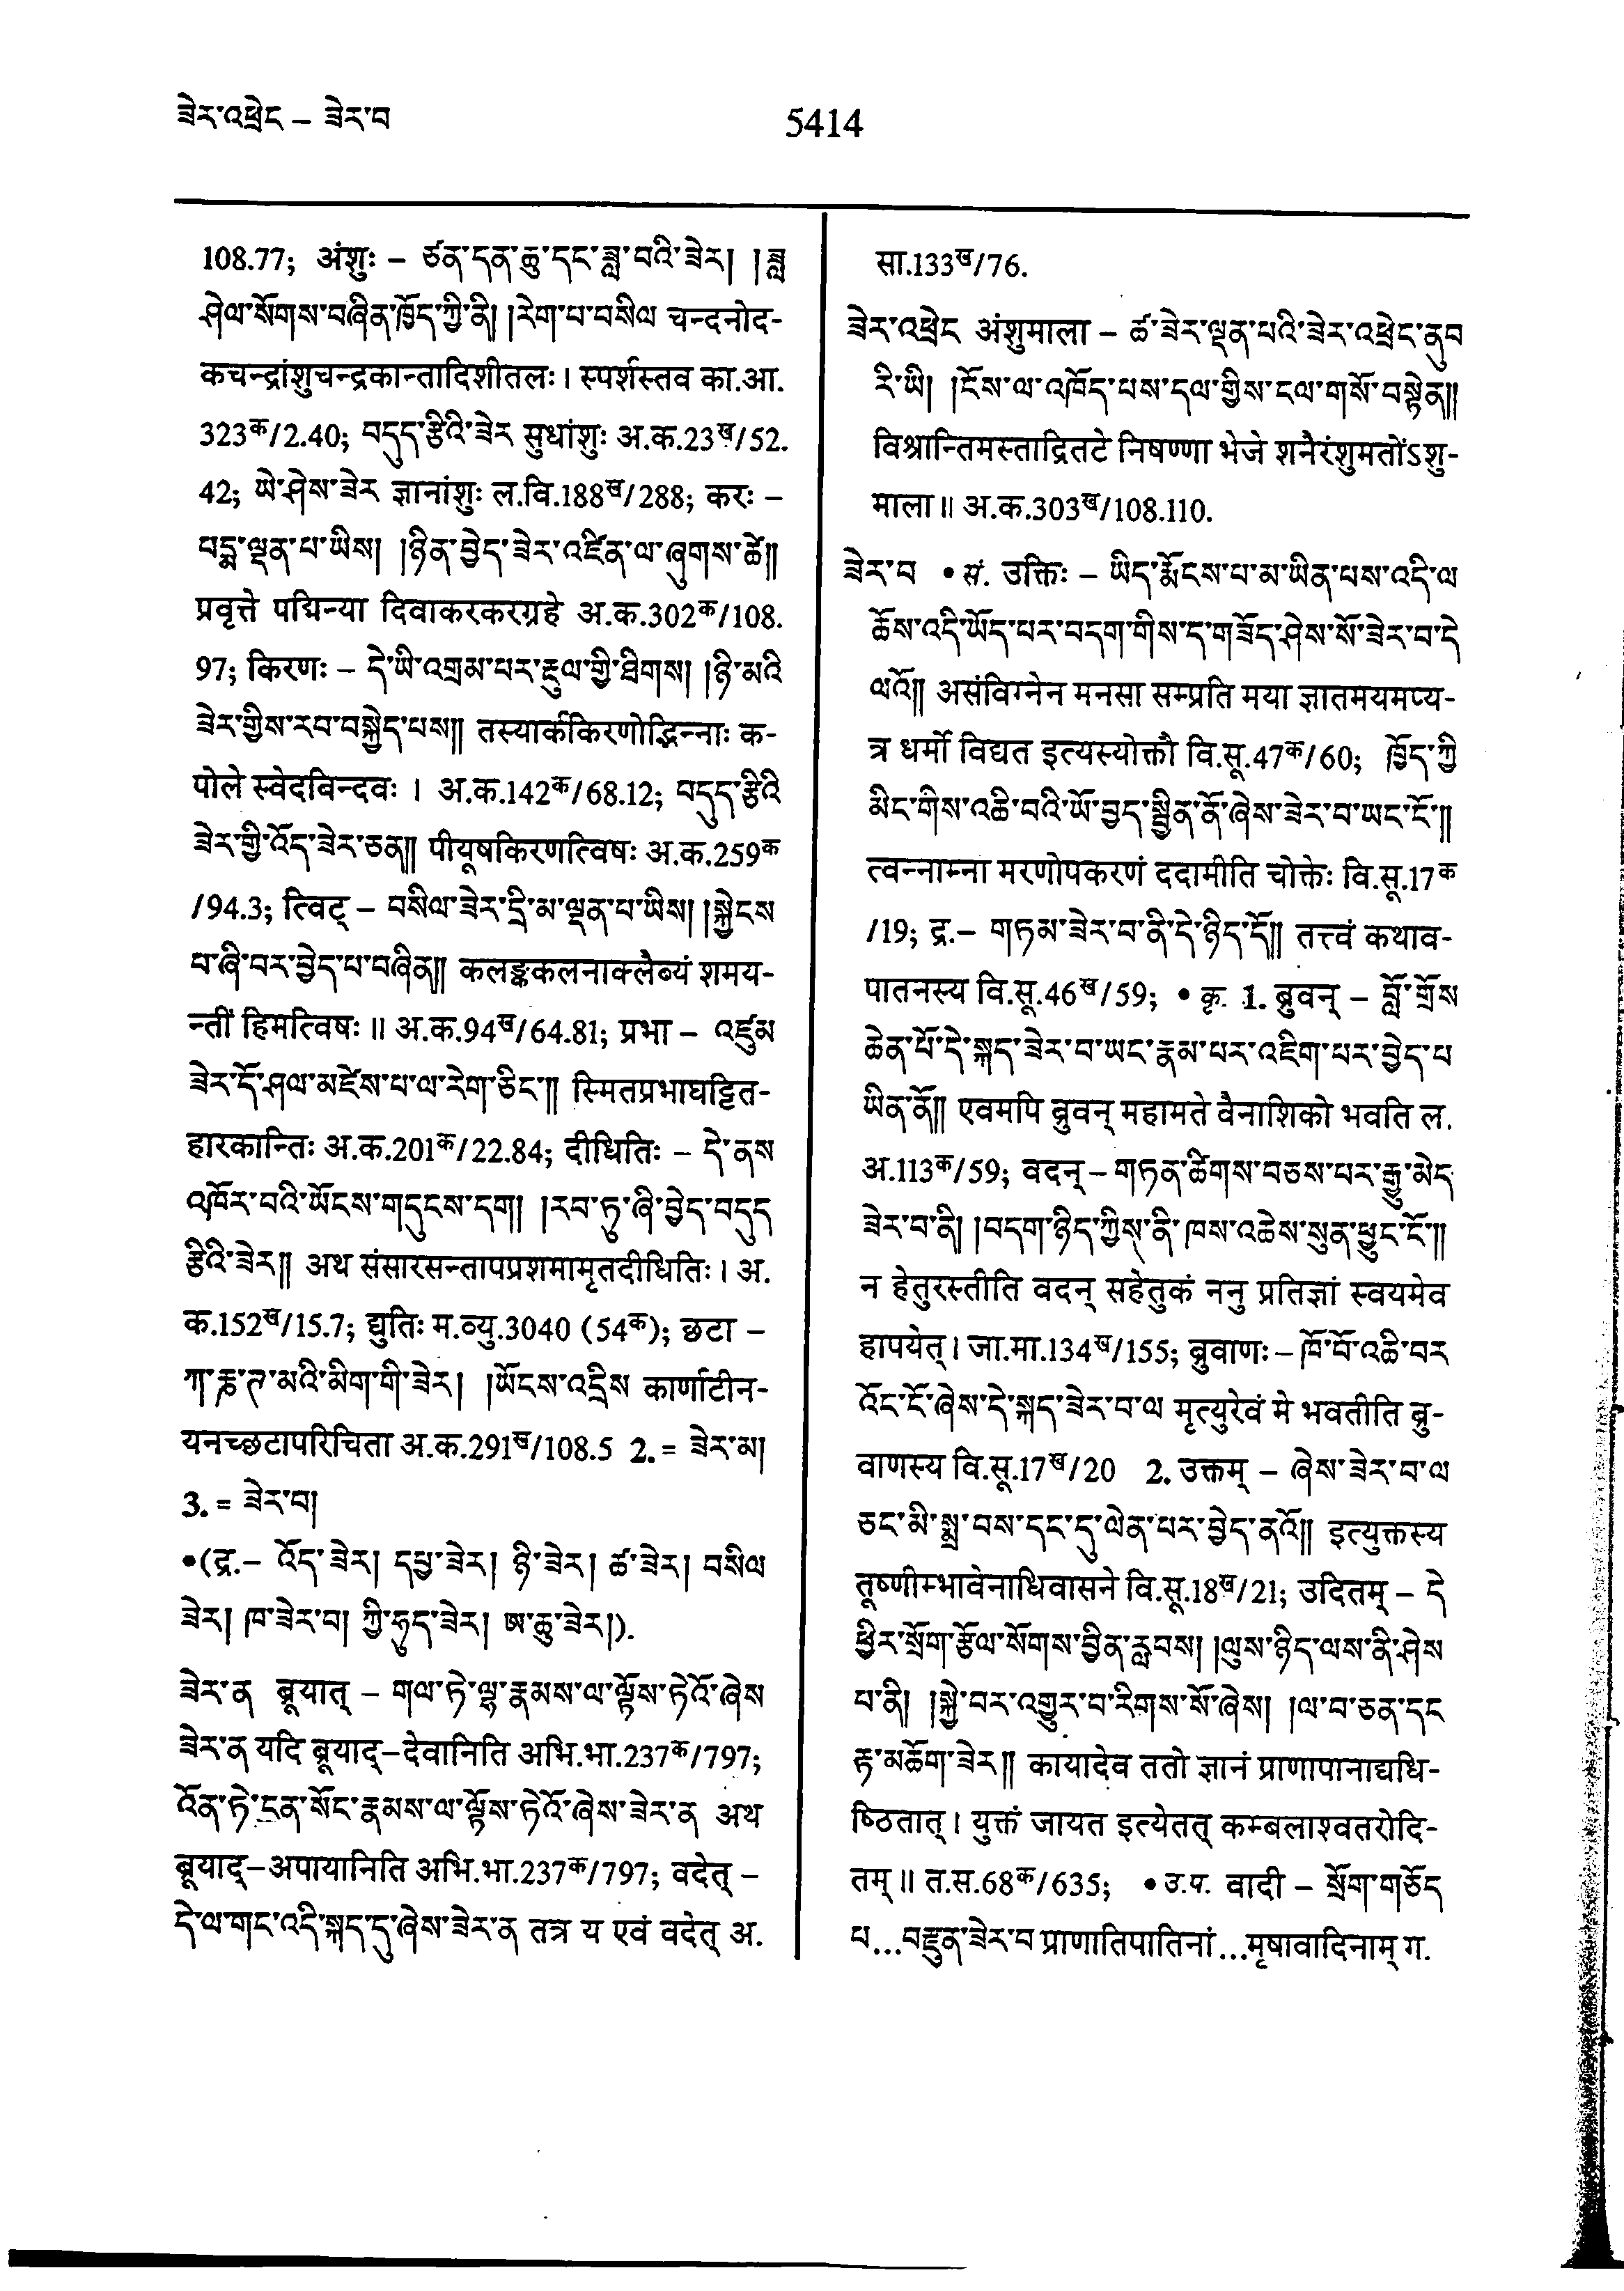 ཟེར་འཕྲེང – ཟེར་བ
5414
108.77; अंशुः – ཙན་དན་ཆུ་དང་ཟླ་བའི་ཟེར། །ཟླ
ཤེལ་སོགས་བཞིན་ཁྱོད་ཀྱི་ནི། །རེག་པ་བསིལ चन्दनोद-
कचन्द्रांशुचन्द्रकान्तादिशीतलः। स्पर्शस्तव का.आ.
323क/2.40; བདུད་རྩིའི་ཟེར सुधांशुः अ.क.23ख/52.
42; ཡེ་ཤེས་ཟེར ज्ञानांशुः ल.वि.188ख/288; करः –
པདྨ་ལྡན་པ་ཡིས། །ཉིན་བྱེད་ཟེར་འཛིན་ལ་ཞུགས་ཚེ༎
प्रवृत्ते पद्मिन्या दिवाकरकरग्रहे अ.क.302क/108.
97; किरणः – དེ་ཡི་འགྲམ་པར་རྡུལ་གྱི་ཐིགས། །ཉི་མའི
ཟེར་གྱིས་རབ་བསྐྱེད་པས༎ तस्यार्ककिरणोद्भिन्नाः क-
पोले स्वेदविन्दवः । अ.क.142क/68.12; བདུད་རྩིའི
ཟེར་གྱི་འོད་ཟེར་ཅན༎ पीयूषकिरणत्विषः अ.क.259क
/94.3; त्विट् – བསིལ་ཟེར་དྲི་མ་ལྡན་པ་ཡིས། །སྐྱེངས
པ་ཞི་བར་བྱེད་པ་བཞིན༎ कलङ्ककलनाक्लैब्यं शमय-
न्तीं हिमत्विषः॥ अ.क.94ख/64.81; प्रभा – འཛུམ
ཟེར་དོ་ཤལ་མཛེས་པ་ལ་རེག་ཅིང་༎ स्मितप्रभाघट्टित-
हारकान्तिः अ.क.201क/22.84; दीधितिः – དེ་ནས
འཁོར་བའི་ཡོངས་གདུངས་དག །རབ་ཏུ་ཞི་བྱེད་བདུད
རྩིའི་ཟེར༎ अथ संसारसन्तापप्रशमामृतदीधितिः। अ.
क.152ख/15.7; द्युतिः म.व्यु.3040 (54क); छटा –
ཀ་རྞ་ཊ་མའི་མིག་གི་ཟེར། །ཡོངས་འདྲིས कार्णाटीन-
यनच्छटापरिचिता अ.क.291ख/108.5 2. = ཟེར་མ།
3. = ཟེར་བ།
•(द्र.– འོད་ཟེར། དཔྱ་ཟེར། ཉི་ཟེར། ཚ་ཟེར། བསིལ
ཟེར། ཁ་ཟེར་བ། ཀྱི་ཧུད་ཟེར། ཨ་ཆུ་ཟེར།).
ཟེར་ན ब्रूयात् – གལ་ཏེ་ལྷ་རྣམས་ལ་ལྟོས་ཏེའོ་ཞེས
ཟེར་ན यदि ब्रूयाद्–देवानिति अभि.भा.237क/797;
འོན་ཏེ་ངན་སོང་རྣམས་ལ་ལྟོས་ཏེའོ་ཞེས་ཟེར་ན अथ
ब्रूयाद्–अपायानिति अभि.भा.237क/797; वदेत् –
དེ་ལ་གང་འདི་སྐད་དུ་ཞེས་ཟེར་ན तत्र य एवं वदेत् अ.
सा.133ख/76.
ཟེར་འཕྲེང अंशुमाला – ཚ་ཟེར་ལྡན་པའི་ཟེར་འཕྲེང་ནུབ
རི་ཡི། །ངོས་ལ་འཁོད་པས་དལ་གྱིས་ངལ་གསོ་བསྟེན༎
विश्रान्तिमस्ताद्रितटे निषण्णा भेजे शनैरंशुमतोंऽशु-
माला॥ अ.क.303ख/108.110.
ཟེར་བ • सं. उक्तिः – ཡིད་རྨོངས་པ་མ་ཡིན་པས་འདི་ལ
ཆོས་འདི་ཡོད་པར་བདག་གིས་ད་གཟོད་ཤེས་སོ་ཟེར་བ་དེ
ལའོ༎ असंविग्नेन मनसा सम्प्रति मया ज्ञातमयमप्य-
त्र धर्मो विद्यत इत्यस्योक्तौ वि.सू.47क/60; ཁྱོད་ཀྱི
མིང་གིས་འཆི་བའི་ཡོ་བྱད་སྦྱིན་ནོ་ཞེས་ཟེར་བ་ཡང་ངོ་༎
त्वन्नाम्ना मरणोपकरणं ददामीति चोक्तेः वि.सू.17क
/19; द्र.– གཏམ་ཟེར་བ་ནི་དེ་ཉིད་དོ༎ तत्त्वं कथाव-
पातनस्य वि.सू.46ख/59; • कृ. 1. ब्रुवन् – བློ་གྲོས
ཆེན་པོ་དེ་སྐད་ཟེར་བ་ཡང་རྣམ་པར་འཇིག་པར་བྱེད་པ
ཡིན་ནོ༎ एवमपि ब्रुवन् महामते वैनाशिको भवति ल.
अ.113क/59; वदन् – གཏན་ཚིགས་བཅས་པར་རྒྱུ་མེད
ཟེར་བ་ནི། །བདག་ཉིད་ཀྱིས་ནི་ཁས་འཆེས་སུན་ཕྱུང་ངོ་༎
न हेतुरस्तीति वदन् सहेतुकं ननु प्रतिज्ञां स्वयमेव
हापयेत्। जा.मा.134ख/155; ब्रुवाणः – ཁོ་བོ་འཆི་བར
འོང་ངོ་ཞེས་དེ་སྐད་ཟེར་བ་ལ मृत्युरेवं मे भवतीति ब्रु-
वाणस्य वि.सू.17ख/20 2. उक्तम् – ཞེས་ཟེར་བ་ལ
ཅང་མི་སྨྲ་བས་དང་དུ་ལེན་པར་བྱེད་ནའོ༎ इत्युक्तस्य
तूष्णीम्भावेनाधिवासने वि.सू.18ख/21; उदितम् – དེ
ཕྱིར་སྲོག་རྩོལ་སོགས་བྱིན་རླབས། །ལུས་ཉིད་ལས་ནི་ཤེས
པ་ནི། །སྐྱེ་བར་འགྱུར་བ་རིགས་སོ་ཞེས། །ལ་བ་ཅན་དང
རྟ་མཆོག་ཟེར༎ कायादेव ततो ज्ञानं प्राणापानाद्यधि-
ष्ठितात्। युक्तं जायत इत्येतत् कम्बलाश्वतरोदि-
तम्॥ त.स.68क/635; • उ.प. वादी – སྲོག་གཅོད
པ...བརྫུན་ཟེར་བ प्राणातिपातिनां...मृषावादिनाम् ग.